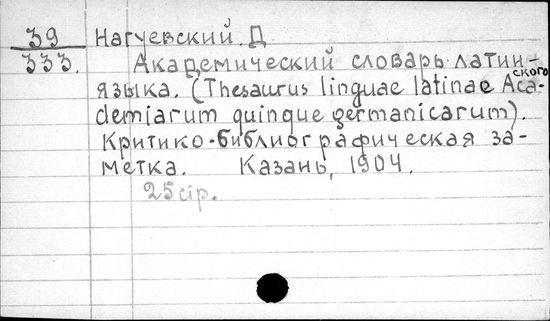 39 Нагуевский. Д
333. Академический словарь латин-
ского
языка. (Thesaurus linguae latinae Aca-
demiarum quinque germanicarum).
Критико-библиографическая за-
метка. Казань, 1904.
25 стр.